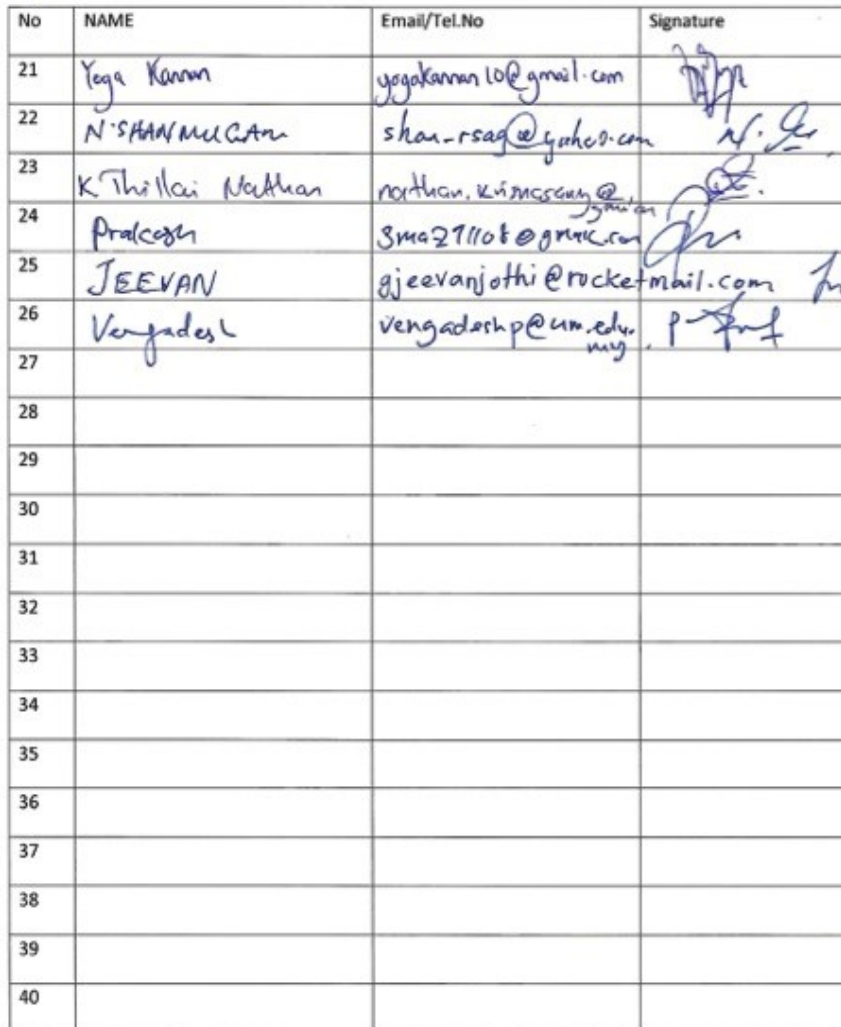 No NAME Email/Tel.No Signature
21 Yoga Kannan yogakannan10@gmail.com
22 N.SHANMUGAM shan_rsag@yahoo.com
23 K Thillai Nathan
24 Prakash
25 JEEVAN gjeevanjothi@rocketmail.com
26 Vengadesh vengadeshp@um.edu.
my
27
28
29
30
31
32
33
34
35
36
37
38
39
40